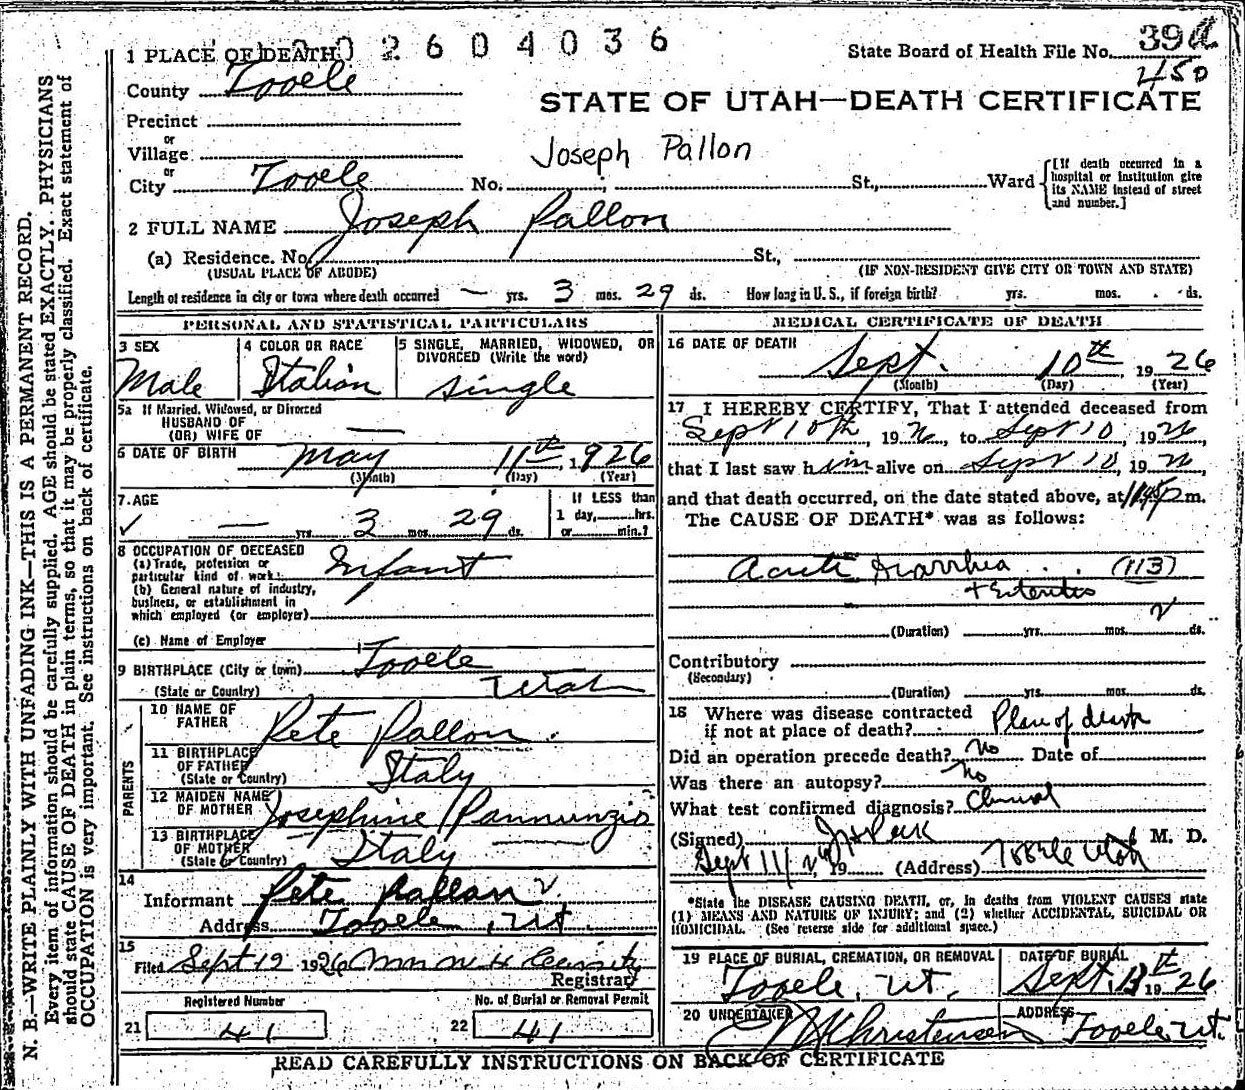 2604036
1 PLACE OF DEATH
State Board of Health File No. 39a
450
County Tooele
STATE OF UTAH—DEATH CERTIFICATE
Precinct
or
Village
Joseph Pallon
or
City Tooele No. ; St., Ward
[If death occurred in a hospital or institution give its NAME instead of street and number.]
2 FULL NAME Joseph Pallon
(a) Residence. No. St.,
(USUAL PLACE OF ABODE) (IF NON-RESIDENT GIVE CITY OR TOWN AND STATE)
Length of residence in city or town where death occurred — yrs. 3 mos. 29 ds. How long in U. S., if foreign birth? yrs. mos. ds.
PERSONAL AND STATISTICAL PARTICULARS
3 SEX
Male
4 COLOR OR RACE
Italian
5 SINGLE, MARRIED, WIDOWED, OR DIVORCED (Write the word)
single
5a If Married, Widowed, or Divorced
HUSBAND OF
(OR) WIFE OF —
6 DATE OF BIRTH May 11th, 1926
(Month) (Day) (Year)
7. AGE
✓ — yrs 3 mos. 29 ds.
If LESS than
1 day, hrs.
or min.?
8 OCCUPATION OF DECEASED
(a) Trade, profession or
particular kind of work Infant
(b) General nature of industry,
business, or establishment in
which employed (or employer)
(c) Name of Employer
9 BIRTHPLACE (City or town) Tooele
(State or Country) Utah
PARENTS
10 NAME OF FATHER Pete Pallon.
11 BIRTHPLACE OF FATHER
(State or Country) Italy
12 MAIDEN NAME OF MOTHER Josephine Pannunzio
13 BIRTHPLACE OF MOTHER
(State or Country) Italy
14
Informant Pete Pallon
Address Tooele, Ut.
15
Filed Sept 12 1926
Registrar
Registered Number
21 41
No. of Burial or Removal Permit
22 41
MEDICAL CERTIFICATE OF DEATH
16 DATE OF DEATH
Sept. 10th 1926
(Month) (Day) (Year)
17 I HEREBY CERTIFY, That I attended deceased from
Sept 10th, 1926, to Sept 10, 1926,
that I last saw him alive on Sept 10, 1926
and that death occurred, on the date stated above, at m.
The CAUSE OF DEATH* was as follows:
Acute Diarrhea (113)
+ Enteritis
(Duration) yrs. mos. 2 ds.
Contributory
(Secondary)
(Duration) yrs. mos. ds.
18 Where was disease contracted
if not at place of death? Place of death
Did an operation precede death? No Date of
Was there an autopsy? No
What test confirmed diagnosis? Clinical
(Signed) M. D.
Sept 11/26, 19 (Address) Tooele Utah
*State the DISEASE CAUSING DEATH, or, in deaths from VIOLENT CAUSES state
(1) MEANS AND NATURE OF INJURY; and (2) whether ACCIDENTAL, SUICIDAL OR
HOMICIDAL. (See reverse side for additional space.)
19 PLACE OF BURIAL, CREMATION, OR REMOVAL
Tooele, Ut.
DATE OF BURIAL
Sept. 13th 1926
20 UNDERTAKER
Christensen
ADDRESS
Tooele, Ut.
READ CAREFULLY INSTRUCTIONS ON BACK OF CERTIFICATE
N. B.—WRITE PLAINLY WITH UNFADING INK—THIS IS A PERMANENT RECORD.
Every item of information should be carefully supplied. AGE should be stated EXACTLY. PHYSICIANS
should state CAUSE OF DEATH in plain terms, so that it may be properly classified. Exact statement of
OCCUPATION is very important. See instructions on back of certificate.